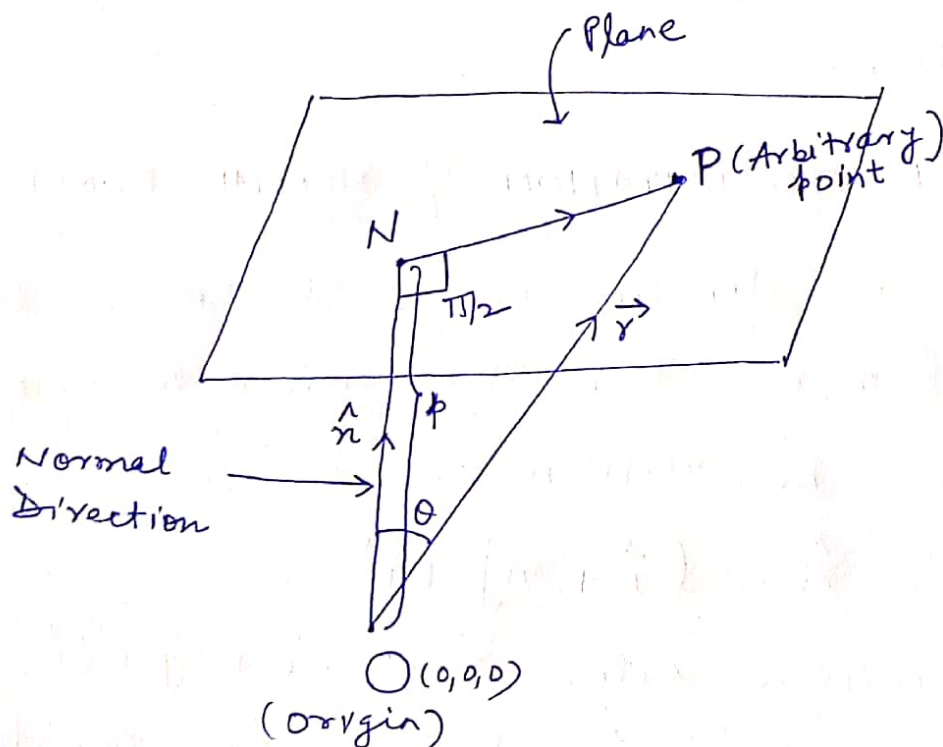 Plane
P (Arbitrary)
point
N
π/2
r⃗
n̂
p
Normal
Direction
θ
O (0,0,0)
(origin)